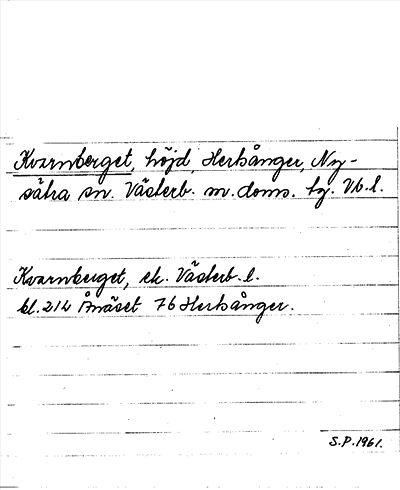 Kvarnberget, höjd, Herrsånger, Ny-
sätra sn. Västerb. m. doms. tg. Vb. l.
Kvarnberget, ek. Västerb. l.
bl. 214 Ånäset 76 Herrsånger.
S.P. 1961.